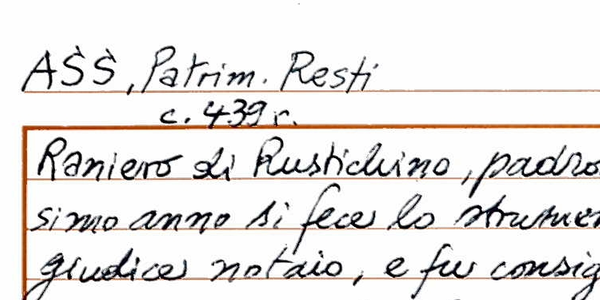 ASS, Patrim. Resti
c. 439 r.
Raniero di Rustichino, padro
simo anno si fece lo strumen
giudice notaio, e fu consig